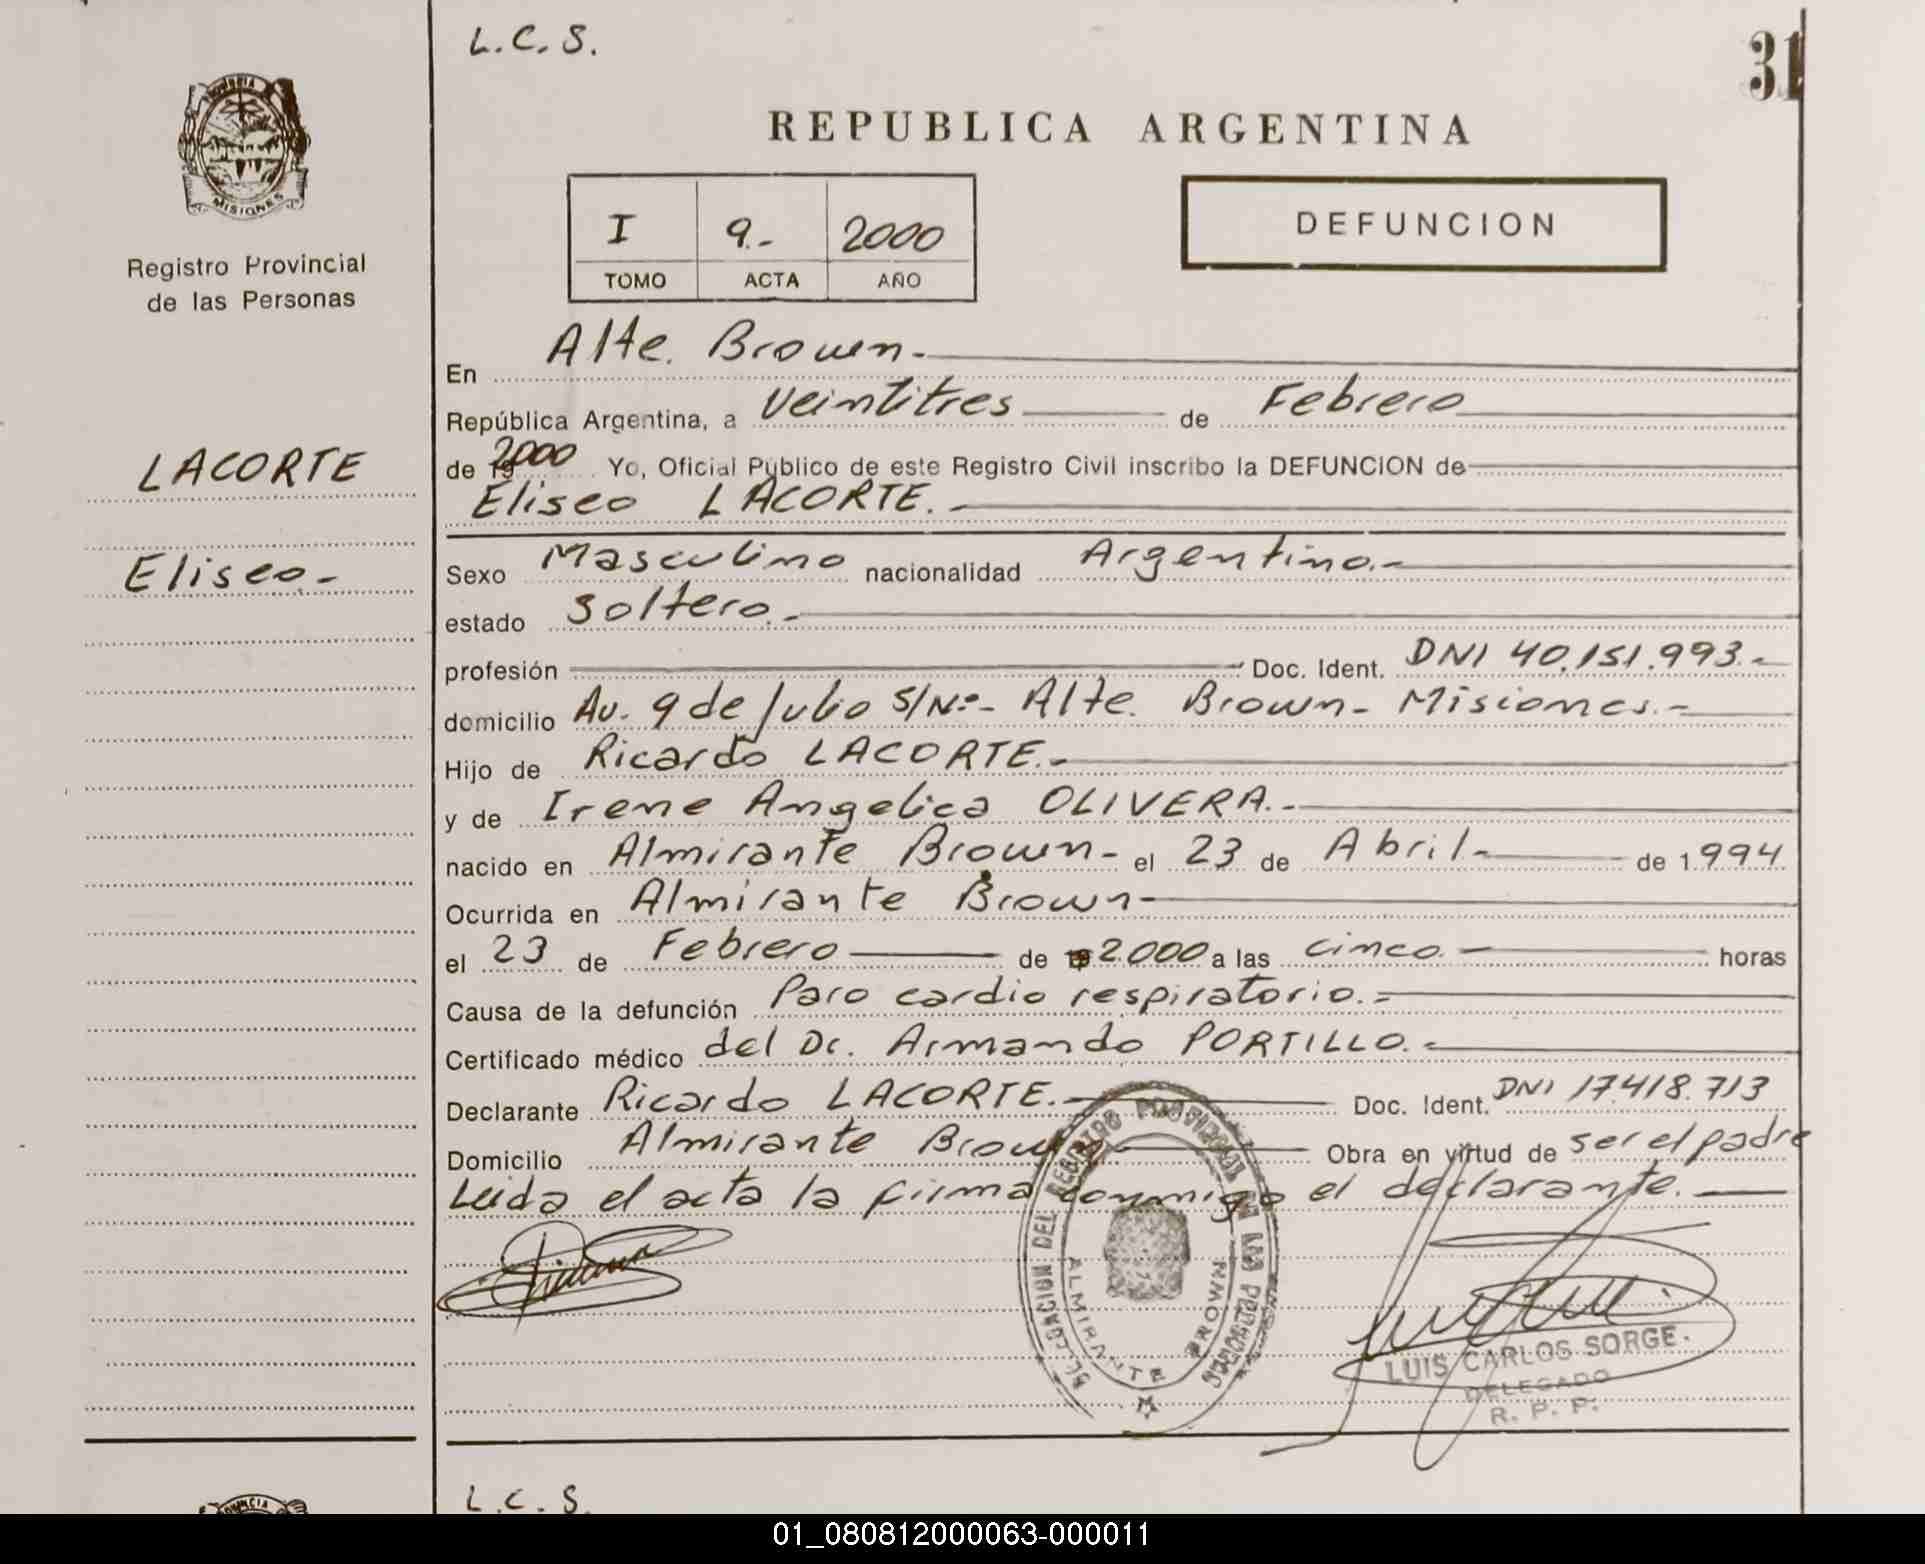 L.C.S.
31
REPUBLICA ARGENTINA
MISIONES
Registro Provincial
de las Personas
I 9.- 2000
TOMO ACTA AÑO
DEFUNCION
LACORTE
Eliseo.-
En Alte. Brown.-
República Argentina, a Veintitres de Febrero
de 2000 Yo, Oficial Público de este Registro Civil inscribo la DEFUNCION de
Eliseo LACORTE.-
Sexo Masculino nacionalidad Argentino.-
estado Soltero.-
profesión Doc. Ident. DNI 40.151.993.-
domicilio Av. 9 de Julio S/Nº- Alte. Brown- Misiones.-
Hijo de Ricardo LACORTE.-
y de Irene Angelica OLIVERA.-
nacido en Almirante Brown- el 23 de Abril- de 1.994
Ocurrida en Almirante Brown-
el 23 de Febrero de 2.000 a las cinco.- horas
Causa de la defunción Paro cardio respiratorio.-
Certificado médico del Dr. Armando PORTILLO.-
Declarante Ricardo LACORTE.- Doc. Ident. DNI 17.418.713
Domicilio Almirante Brown- Obra en virtud de ser el padre
Leida el acta la firma conmigo el declarante.-
ALMIRANTE BROWN
LUIS CARLOS SORGE.
DELEGADO
R. P. P.
L.C.S.
01_080812000063-000011